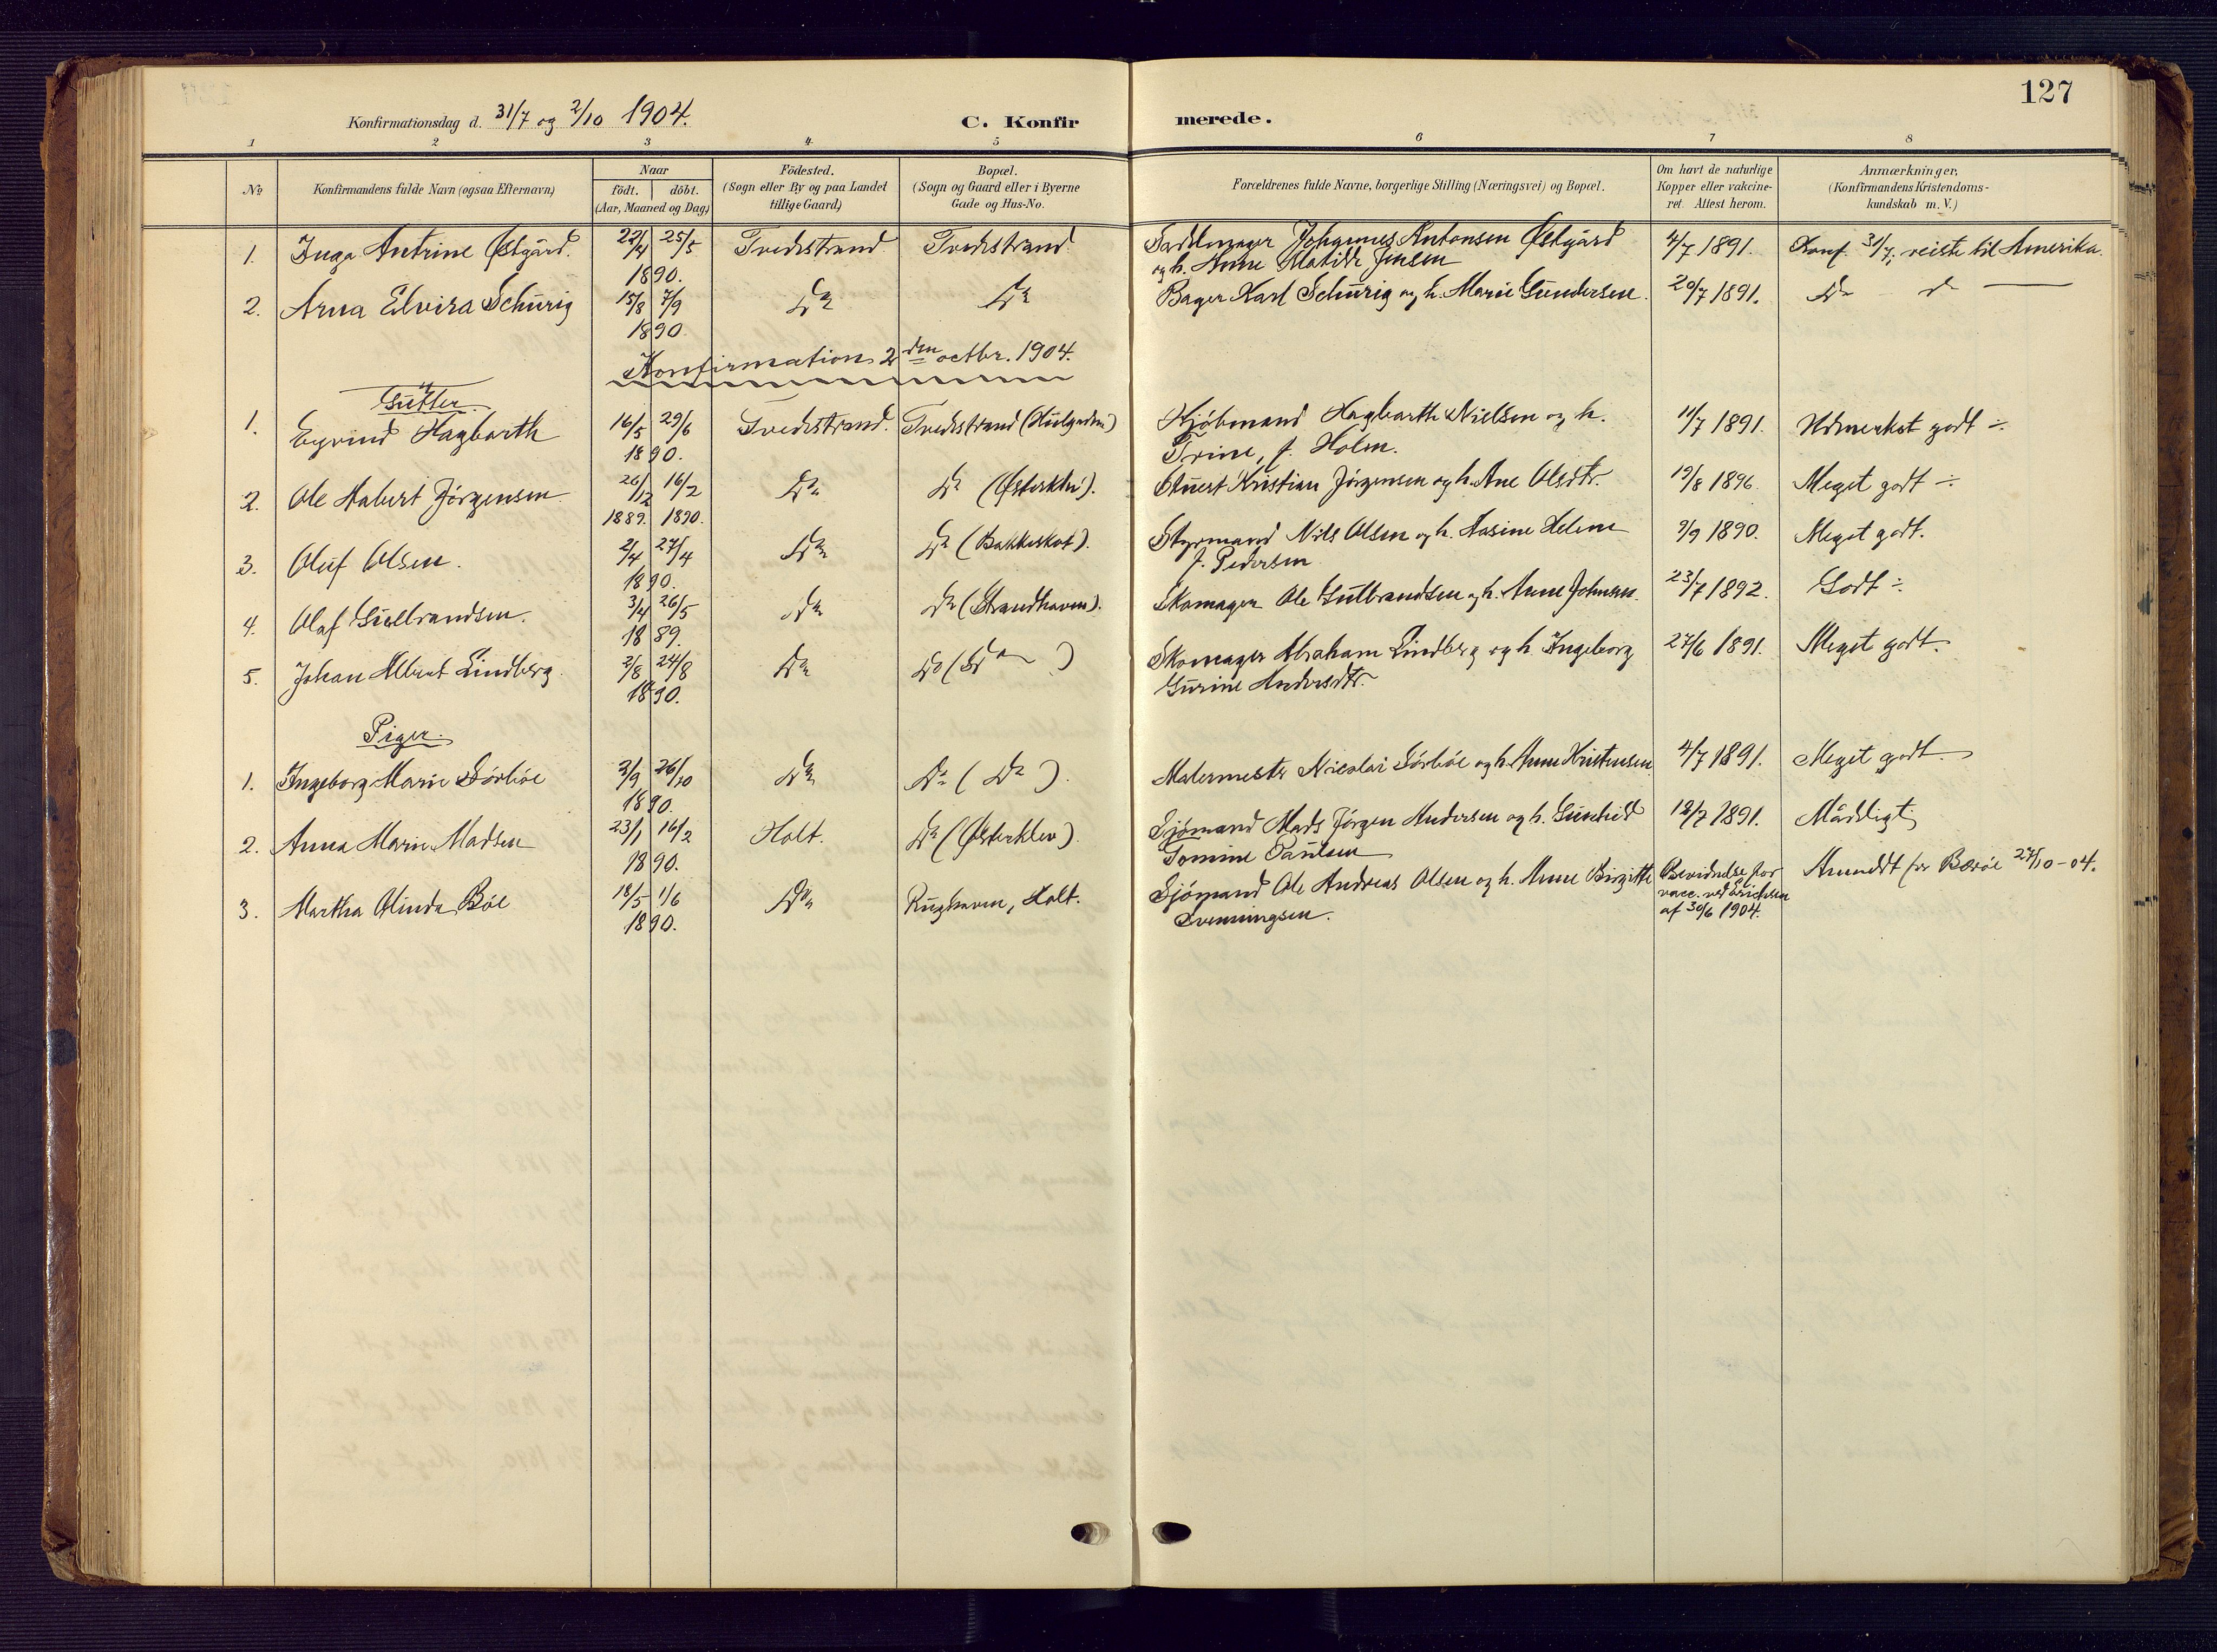 127
Konfirmationsdag d. 31/7 og 2/10 1904.
C. Konfirmerede.
1 2 3 4 5 6 7 8
No
Konfirmandens fulde Navn (ogsaa Efternavn)
Naar
födt. döbt.
(Aar, Maaned og Dag)
Födested.
(Sogn eller By og paa Landet
tillige Gaard)
Bopæl.
(Sogn og Gaard eller i Byerne
Gade og Hus-No.
Forældrenes fulde Navne, borgerlige Stilling (Næringsvei) og Bopæl.
Om havt de naturlige
Kopper eller vakcine-
ret. Attest herom.
Anmærkninger,
(Konfirmandens Kristendoms-
kundskab m.V.)
1. Inga Antrine Østgård. 22/4 25/5 Tvedestrand Tvedestrand Sadelmager Johannes Antonsen Østgård 4/7 1891. Konf. 31/7, reiste til Amerika.
1890. og h. Anne Matilde Jensen
2. Arna Elvira Schürig 15/8 7/9 Do Do Bager Karl Schürig og h. Marie Gundersen. 20/7 1891. Do do
1890
Konfirmation 2den octbr. 1904.
Gutter.
1. Eyvind Hagbarth 16/5 29/6 Tvedestrand. Tvedestrand (Hulgaden) Kjøbmand Hagbarth Nielsen og h. 11/7 1891. Udmerket godt ÷
1890. Trine, f. Holm.
2. Ole Halvert Jörgensen 26/12 16/2 Do Do (Østerkliv). Kristian Jörgensen og h. Ane Olsdtr. 19/8 1896. Meget godt ÷
1889. 1890.
3. Oluf Olsen. 2/4 27/4 Do Do (Bakkeskot). Styrmand Nils Olsen og h. Hasine Helene 9/9 1890. Meget godt.
1890. f. Pedersen
4. Olaf Gulbrandsen. 3/4 26/5 Do Do (Strandhaven). Skomager Ole Gulbrandsen og h. Anne Johnsen. 23/7 1892. Godt ÷
1889.
5. Johan Albert Lindberg. 2/8 24/8 Do Do (Do) Skomager Abraham Lindberg og h. Ingeborg 27/6 1891. Meget godt.
1890. Gurine Andersdtr.
Piger.
1. Ingeborg Marie Sörböe 2/9 26/10 Do Do (Do). Malermester Nicolai Sörböe og h. Anne Kristensen. 4/7 1891. Meget godt.
1890.
2. Anna Marie Madsen 23/1 16/2 Holt. Do (Østerklev). Sjömand Mads Jörgen Andersen og h. Gunhild 18/7 1891. Mådeligt
1890. Tomine Paulsen
3. Martha Olinda Böe 18/5 1/6 Do Rughaven, Holt. Sjömand Ole Andreas Olsen og h. Anne Birgitte Bevidnelse for Anmeldt for Borøe 27/10-04.
1890. Svenningsen. vacc. ved Erichsen
af 30/6 1904.